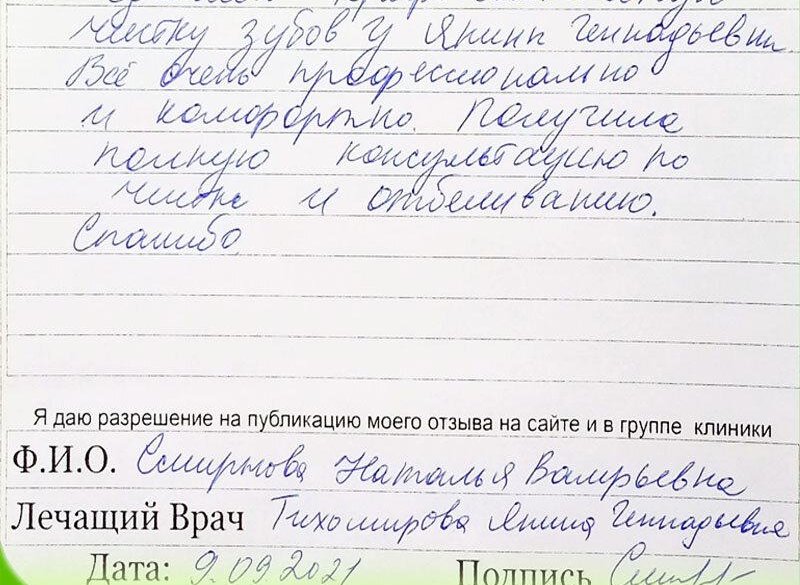 чистку зубов у Янины Геннадьевны.
Всё очень профессионально
и комфортно. Получила
полную консультацию по
чистке и отбеливанию.
Спасибо
Я даю разрешение на публикацию моего отзыва на сайте и в группе клиники
Ф.И.О. Смирнова Наталья Валерьевна
Лечащий Врач Тихомирова Янина Геннадьевна
Дата: 9.09.2021 Подпись